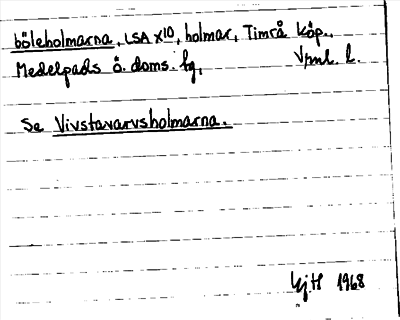 böleholmarna, LSA X10, holmar, Timrå köp.,
Medelpads ö. doms. tg, Vpml. l.
Se Vivstavarvsholmarna.
1968